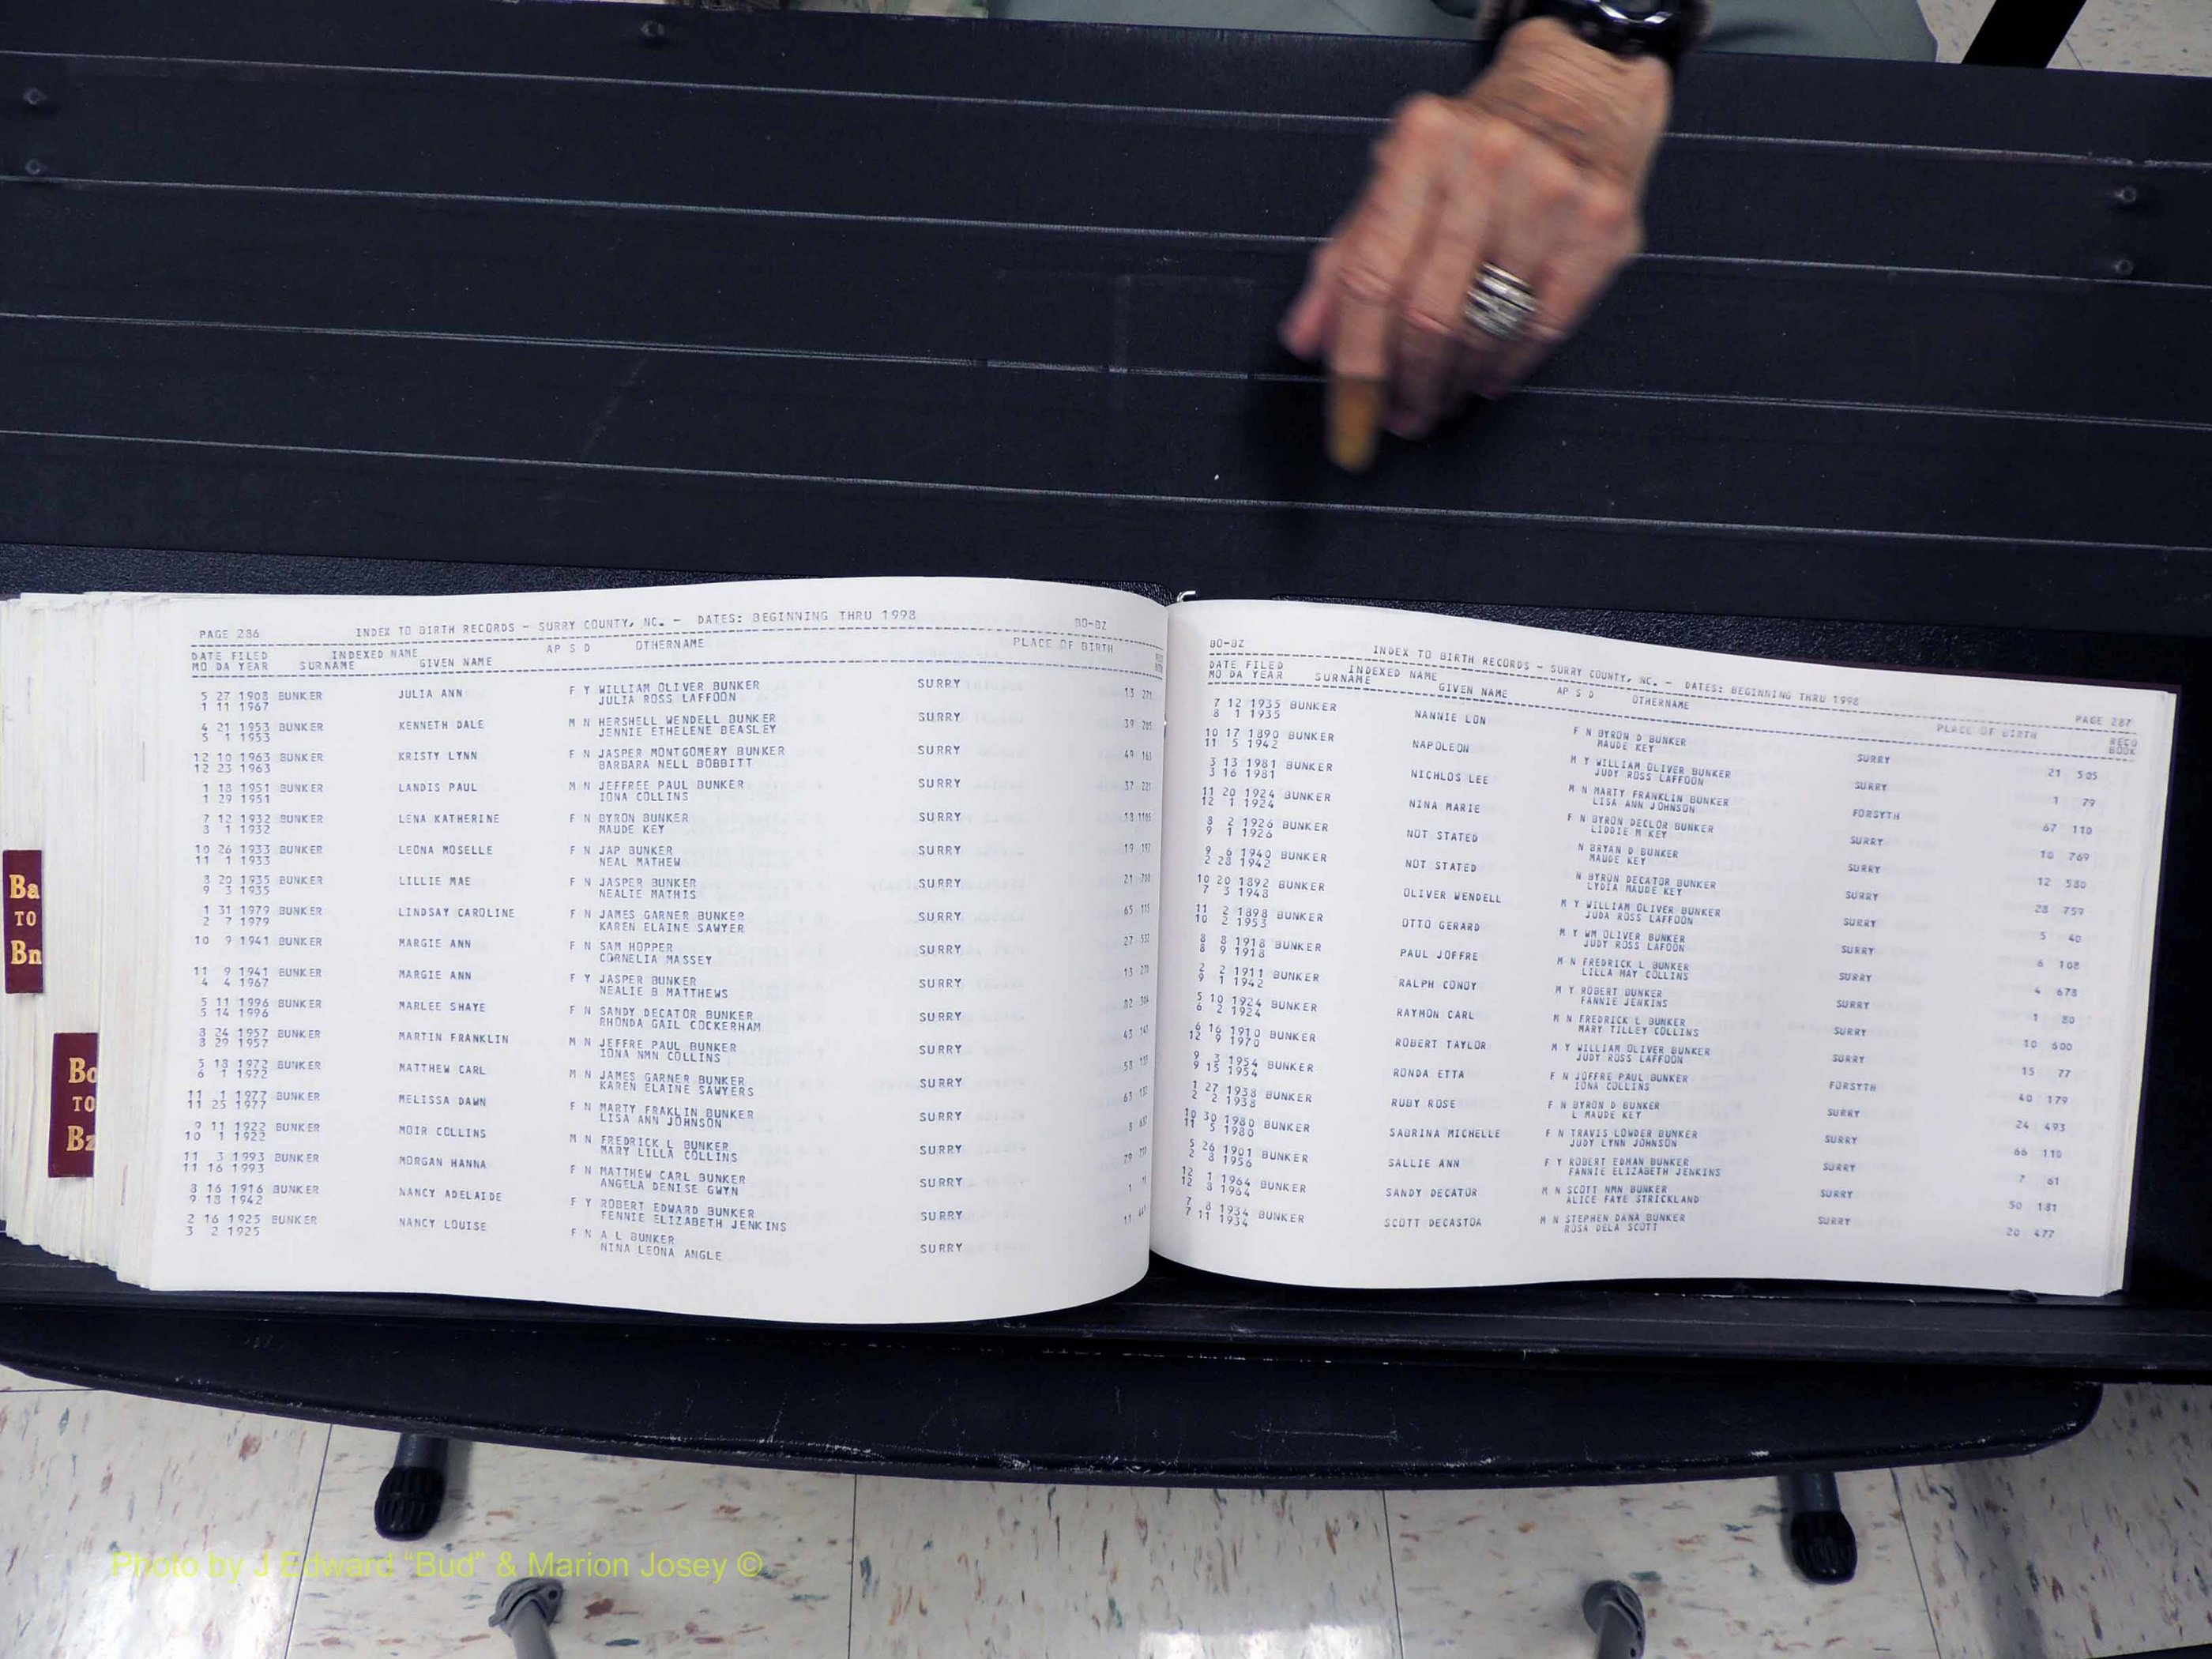 PAGE 286 INDEX TO BIRTH RECORDS - SURRY COUNTY, NC. - DATES: BEGINNING THRU 1998 BO-BZ
DATE FILED INDEXED NAME AP S D OTHERNAME PLACE OF BIRTH
MO DA YEAR SURNAME GIVEN NAME
5 27 1908 BUNKER JULIA ANN F Y WILLIAM OLIVER BUNKER SURRY 13 271
1 11 1967 JULIA ROSS LAFFOON
4 21 1953 BUNKER KENNETH DALE M N HERSHELL WENDELL BUNKER SURRY 39
5 1 1953 JENNIE ETHELENE BEASLEY
12 10 1963 BUNKER KRISTY LYNN F N JASPER MONTGOMERY BUNKER SURRY 49 161
12 23 1963 BARBARA NELL BOBBITT
1 18 1951 BUNKER LANDIS PAUL M N JEFFREE PAUL BUNKER SURRY 37
1 29 1951 IONA COLLINS
7 12 1932 BUNKER LENA KATHERINE F N BYRON BUNKER SURRY 18
8 1 1932 MAUDE KEY
10 26 1933 BUNKER LEONA MOSELLE F N JAP BUNKER SURRY 19
11 1 1933 NEAL MATHEW
8 20 1935 BUNKER LILLIE MAE F N JASPER BUNKER SURRY 21
9 3 1935 NEALIE MATHIS
1 31 1979 BUNKER LINDSAY CAROLINE F N JAMES GARNER BUNKER SURRY 65
2 7 1979 KAREN ELAINE SAWYER
10 9 1941 BUNKER MARGIE ANN F N SAM HOPPER SURRY 27
CORNELIA MASSEY
11 9 1941 BUNKER MARGIE ANN F Y JASPER BUNKER SURRY 13
4 4 1967 NEALIE B MATTHEWS
5 11 1996 BUNKER MARLEE SHAYE F N SANDY DECATOR BUNKER SURRY 82
5 14 1996 RHONDA GAIL COCKERHAM
8 24 1957 BUNKER MARTIN FRANKLIN M N JEFFRE PAUL BUNKER SURRY 43
8 29 1957 IONA NMN COLLINS
5 18 1972 BUNKER MATTHEW CARL M N JAMES GARNER BUNKER SURRY 58
6 1 1972 KAREN ELAINE SAWYERS
11 1 1977 BUNKER MELISSA DAWN F N MARTY FRAKLIN BUNKER SURRY 63
11 25 1977 LISA ANN JOHNSON
9 11 1922 BUNKER MOIR COLLINS M N FREDRICK L BUNKER SURRY 8
10 1 1922 MARY LILLA COLLINS
11 3 1993 BUNKER MORGAN HANNA F N MATTHEW CARL BUNKER SURRY 79
11 16 1993 ANGELA DENISE GWYN
8 16 1916 BUNKER NANCY ADELAIDE F Y ROBERT EDWARD BUNKER SURRY 1
9 18 1942 FENNIE ELIZABETH JENKINS
2 16 1925 BUNKER NANCY LOUISE F N A L BUNKER SURRY 11
3 2 1925 NINA LEONA ANGLE
BO-BZ INDEX TO BIRTH RECORDS - SURRY COUNTY, NC. - DATES: BEGINNING THRU 1998 PAGE 287
DATE FILED INDEXED NAME AP S D OTHERNAME PLACE OF BIRTH RECO
MO DA YEAR SURNAME GIVEN NAME BOOK
7 12 1935 BUNKER NANNIE LON F N BYRON D BUNKER SURRY 21 505
8 1 1935 MAUDE KEY
10 17 1890 BUNKER NAPOLEON M Y WILLIAM OLIVER BUNKER SURRY 1 79
11 5 1942 JUDY ROSS LAFFOON
3 13 1981 BUNKER NICHLOS LEE M N MARTY FRANKLIN BUNKER FORSYTH 67 110
3 16 1981 LISA ANN JOHNSON
11 20 1924 BUNKER NINA MARIE F N BYRON DECLOR BUNKER SURRY 10 769
12 1 1924 LIDDIE M KEY
8 2 1926 BUNKER NOT STATED N BRYAN D BUNKER SURRY 12 580
9 1 1926 MAUDE KEY
9 6 1940 BUNKER NOT STATED N BYRON DECATOR BUNKER SURRY 28 759
2 28 1942 LYDIA MAUDE KEY
10 20 1892 BUNKER OLIVER WENDELL M Y WILLIAM OLIVER BUNKER SURRY 5 40
7 3 1948 JUDA ROSS LAFFOON
11 2 1898 BUNKER OTTO GERARD M Y WM OLIVER BUNKER SURRY 6 108
10 2 1953 JUDY ROSS LAFOON
8 8 1918 BUNKER PAUL JOFFRE M N FREDRICK L BUNKER SURRY 4 678
8 9 1918 LILLA MAY COLLINS
2 2 1911 BUNKER RALPH CONDY M Y ROBERT BUNKER SURRY 1 80
9 1 1942 FANNIE JENKINS
5 10 1924 BUNKER RAYMON CARL M N FREDRICK L BUNKER SURRY 10 600
6 2 1924 MARY TILLEY COLLINS
6 16 1910 BUNKER ROBERT TAYLOR M Y WILLIAM OLIVER BUNKER SURRY 15 77
12 9 1970 JUDY ROSS LAFFOON
9 3 1954 BUNKER RONDA ETTA F N JOFFRE PAUL BUNKER FORSYTH 40 179
9 15 1954 IONA COLLINS
1 27 1938 BUNKER RUBY ROSE F N BYRON D BUNKER SURRY 24 493
2 2 1938 L MAUDE KEY
10 30 1980 BUNKER SABRINA MICHELLE F N TRAVIS LOWDER BUNKER SURRY 66 110
11 5 1980 JUDY LYNN JOHNSON
5 26 1901 BUNKER SALLIE ANN F Y ROBERT EDMAN BUNKER SURRY 7 61
2 8 1956 FANNIE ELIZABETH JENKINS
12 1 1964 BUNKER SANDY DECATUR M N SCOTT NMN BUNKER SURRY 50 181
12 8 1964 ALICE FAYE STRICKLAND
7 8 1934 BUNKER SCOTT DECASTOA M N STEPHEN DANA BUNKER SURRY 20 477
7 11 1934 ROSA DELA SCOTT
Ba
TO
Bn
Bo
TO
Bz
Photo by J Edward “Bud” & Marion Josey ©